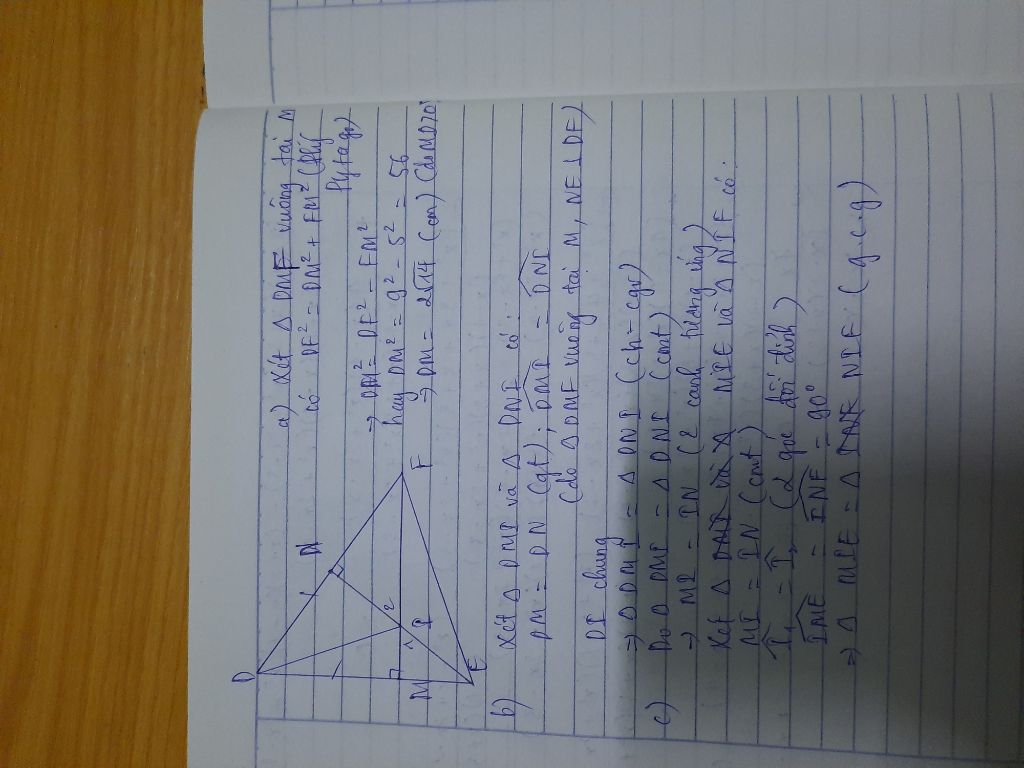 D
N
F
M
I
E
1
2
a) Xét △ DMF vuông tại M
có DF² = DM² + FM² (Đlý
Pytago)
⇒ DM² = DF² - FM²
hay DM² = 9² - 5² = 56
⇒ DM = 2√14 (cm) (do MD>0)
b) Xét △ DMI và △ DNI có:
DM = DN (gt); DMI = DNI
(do △ DMF vuông tại M, NE ⊥ DF)
DI chung
⇒ △ DMI = △ DNI (ch - cgv)
c) Do △ DMI = △ DNI (cmt)
⇒ MI = IN (2 cạnh tương ứng)
Xét △ MIE và △ NIF có:
MI = IN (cmt)
I₁ = I₂ (2 góc đối đỉnh)
IME = INF = 90°
⇒ △ MIE = △ NIF (g.c.g)